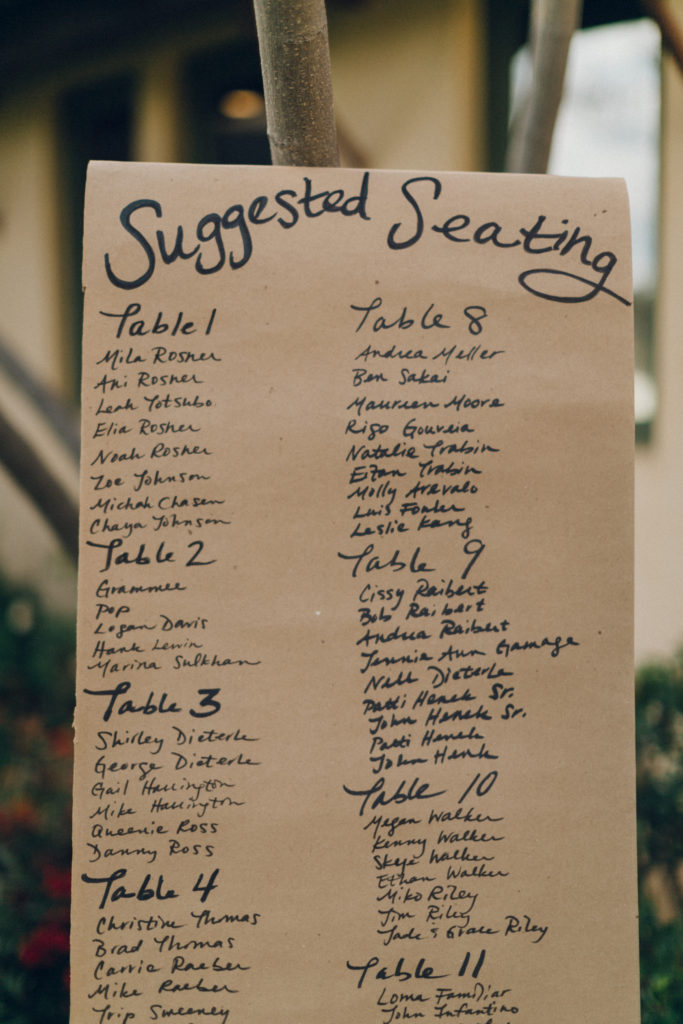 Suggested Seating
Table 1
Mila Rosner
Ari Rosner
Leah Yotsubo
Elia Rosner
Noah Rosner
Zoe Johnson
Michah Chasen
Chaya Johnson
Table 2
Grammee
Pop
Logan Davis
Hank Lewin
Marina Sulkhan
Table 3
Shirley Dieterle
George Dieterle
Gail Harrington
Mike Harrington
Queenie Ross
Danny Ross
Table 4
Christine Thomas
Brad Thomas
Carrie Raeber
Mike Raeber
Trip Sweeney
Table 8
Andrea Meller
Ben Sakai
Maureen Moore
Rigo Gouveia
Natalie Trabin
Eitan Trabin
Molly Arevalo
Luis Fowler
Leslie Kang
Table 9
Cissy Raibert
Bob Raibert
Andrea Raibert
Jennie Aun Gamage
Nell Dieterle
Patti Henek Sr.
John Henek Sr.
Patti Henek
John Henk
Table 10
Megan Walker
Kenny Walker
Skye Walker
Ethan Walker
Miko Riley
Jim Riley
Jade & Grace Riley
Table 11
Loma Familiar
John Infantino